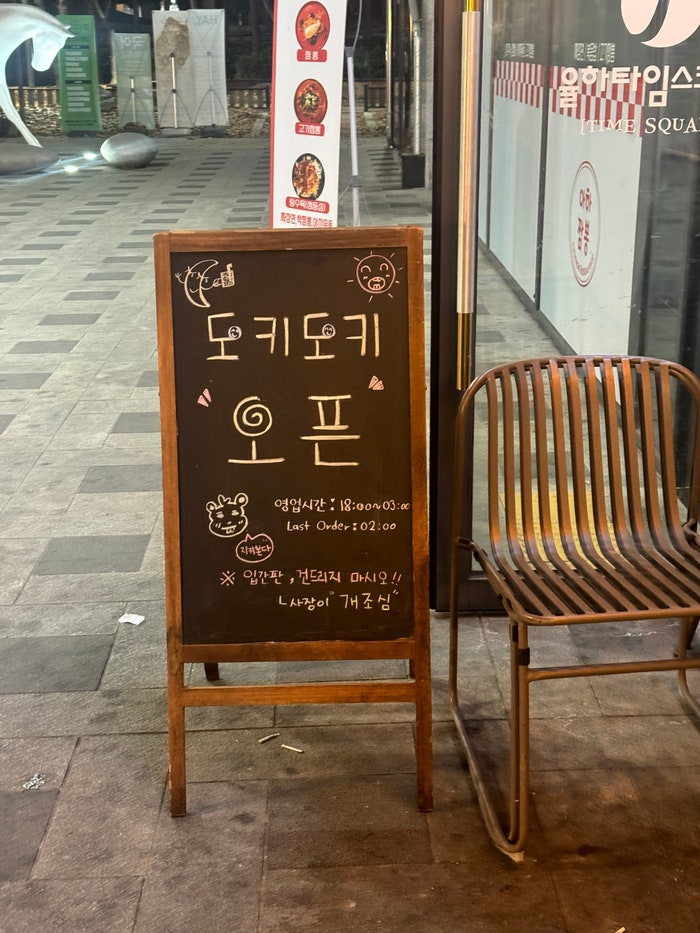 짬뽕
고기짬뽕
탕수육(찹쌀등심)
율하타임스
[TIME SQUA
아하
짬뽕
도키도키
오픈
영업시간 : 18:00~03:00
Last Order : 02:00
지켜본다
※ 입간판, 건드리지 마시오!!
ㄴ사장이 "개조심"